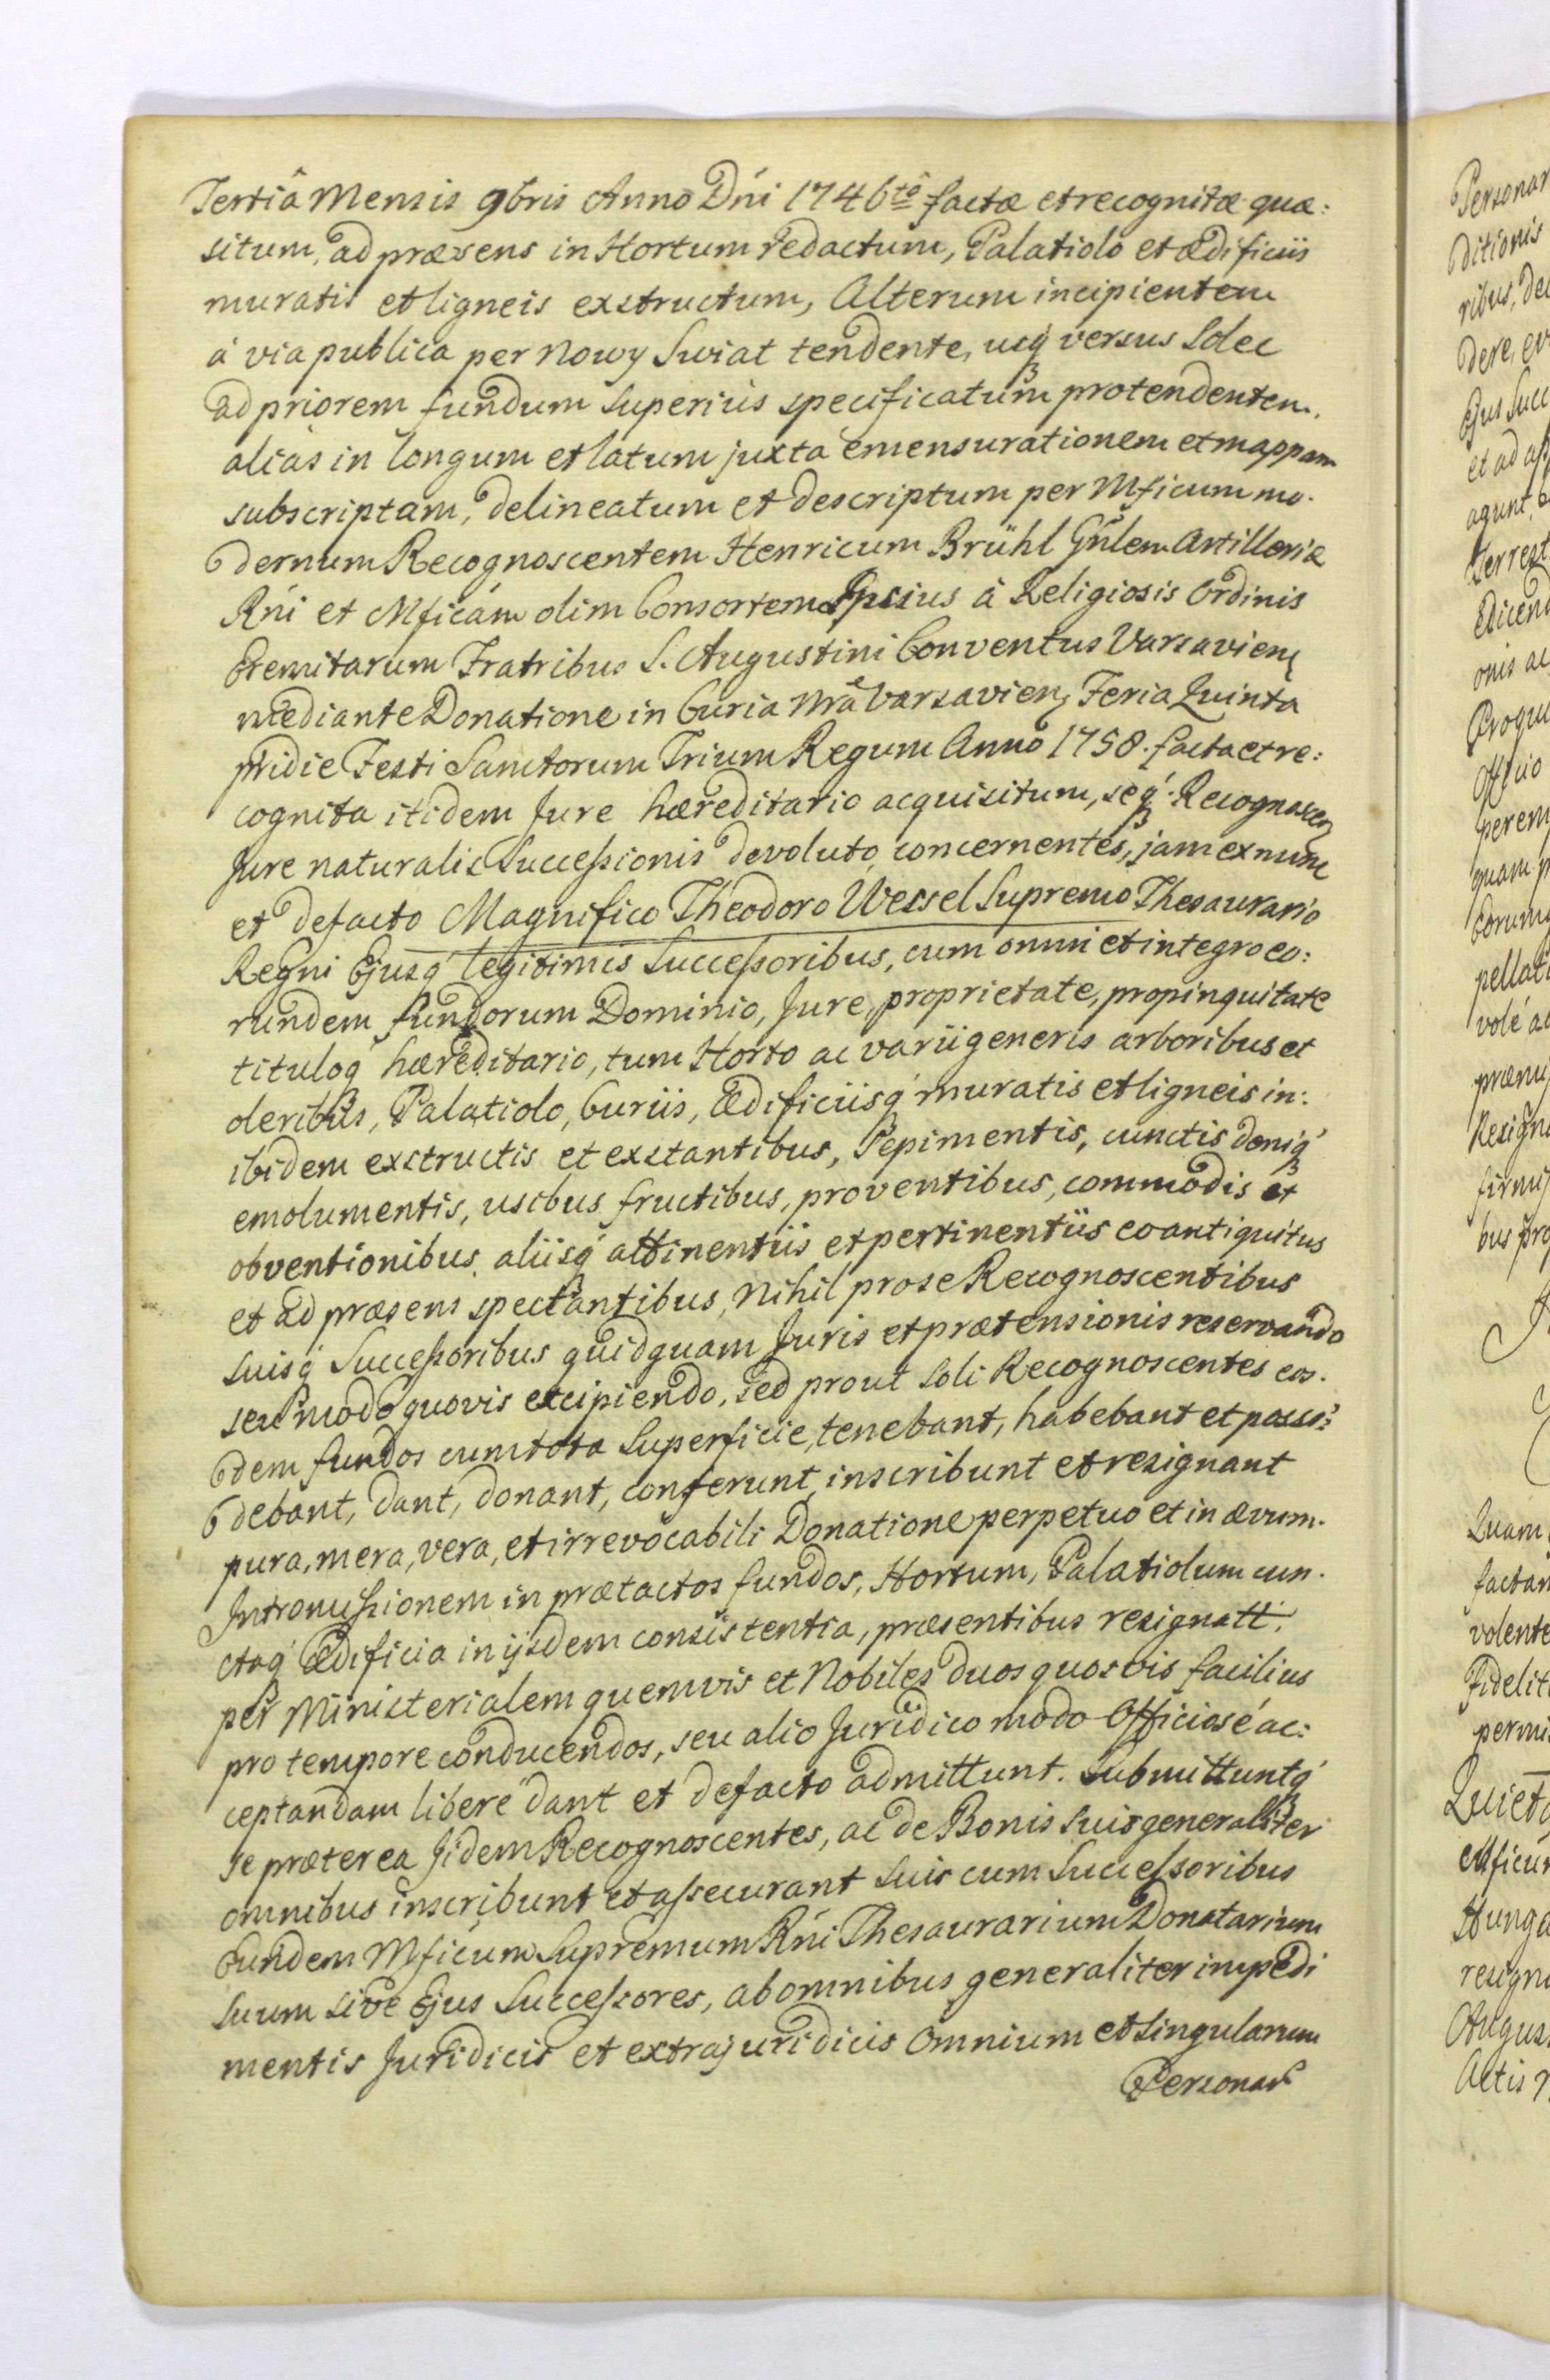 Tertiâ Mensis 9bris Anno Dńi 1746tô factæ et recognitæ quæ:
situm, ad præsens in Hortum redactum, Palatiolo et ædificiis
muratis et ligneis exstructum, Alterum incipientem
á via publica per Nowy Swiat tendente, usq́ versus Solec
ad priorem fundum superiùs specificatum protendentem.
aliàs in longum et latum juxta emensurationem et mappam
subscriptam, delineatum et descriptum per Mficum mo.
dernum Recognoscentem Henricum Brühl Gńlem Artilleriæ
Rńi et Mficám olim Consortem Ipsius à Religiosis Ordinis
Eremitarum Fratribus S. Augustini Conventus Varsavien
mediante Donatione in Curia Nrã Varsavien Feria Quinta
pridie Festi Sanctorum Trium Regum Anno 1758. facta et re:
cognita itidem Jure hæreditario acquisitum, seq́. Recognoscen
Jure naturalis Successionis devoluto concernentes, jam ex nunc
et defacto Magnifico Theodoro Wessel Supremo Thesaurario
Regni Ejusq́ legitimis Successoribus, cum omni et integro eo:
rundem fundorum Dominio, Jure, proprietate, propinquitate
tituloq́ hæreditario, tum Horto ac varii generis arboribus et
oleribus, Palatiolo, Curiis, Ædificiisq́ muratis et ligneis in:
ibidem exstructis et exstantibus, Sepimentis, cunctis deniq́
emolumentis, usibus fructibus, proventibus, commodis et
obventionibus, aliisq́ attinentiis et pertinentiis eo antiquitus
et ad præsens spectantibus, Nihil pro se Recognoscentibus
suisq́ Successoribus quidquam Juris et prætensionis reservando
seu modo quovis excipiendo, sed prout soli Recognoscentes eos.
dem fundos cum tota Superficie, tenebant, habebant et possi:
debant, dant, donant, conferunt, inscribunt et resignant
pura, mera, vera, et irrevocabili Donatione perpetuo et in ævum.
Intromissionem in prætactos fundos, Hortum, Palatiolum cun.
ctaq́ Ædificia in ijsdem consistentia, præsentibus resignatt.
per Ministerialem quemvis et Nobiles duos quosvis facilius
pro tempore conducendos, seu alio Juridico modo Officiosé ac:
ceptandam libere dant et defacto admittunt. Submittuntq́
se præterea Iidem Recognoscentes, ac de Bonis suis generaliter
omnibus inscribunt et assecurant suis cum Successoribus
Eundem Mficum Supremum Rńi Thesaurarium Donatarium
suum sive Ejus Successores, ab omnibus generaliter impedi
mentis Juridicis et extrajuridicis omnium et singularum
Personar